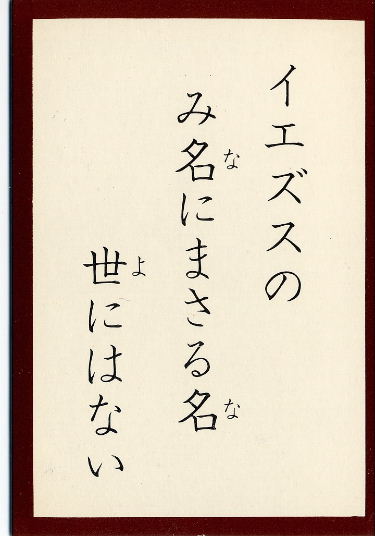 イエズスの
み名にまさる名
世にはない